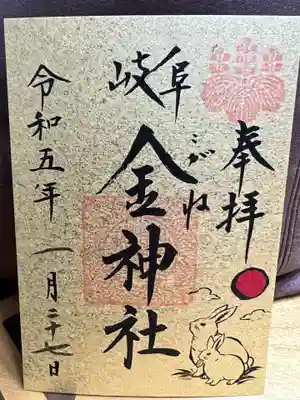 奉拝
岐阜
こがね
金神社
令和五年 一月二十七日